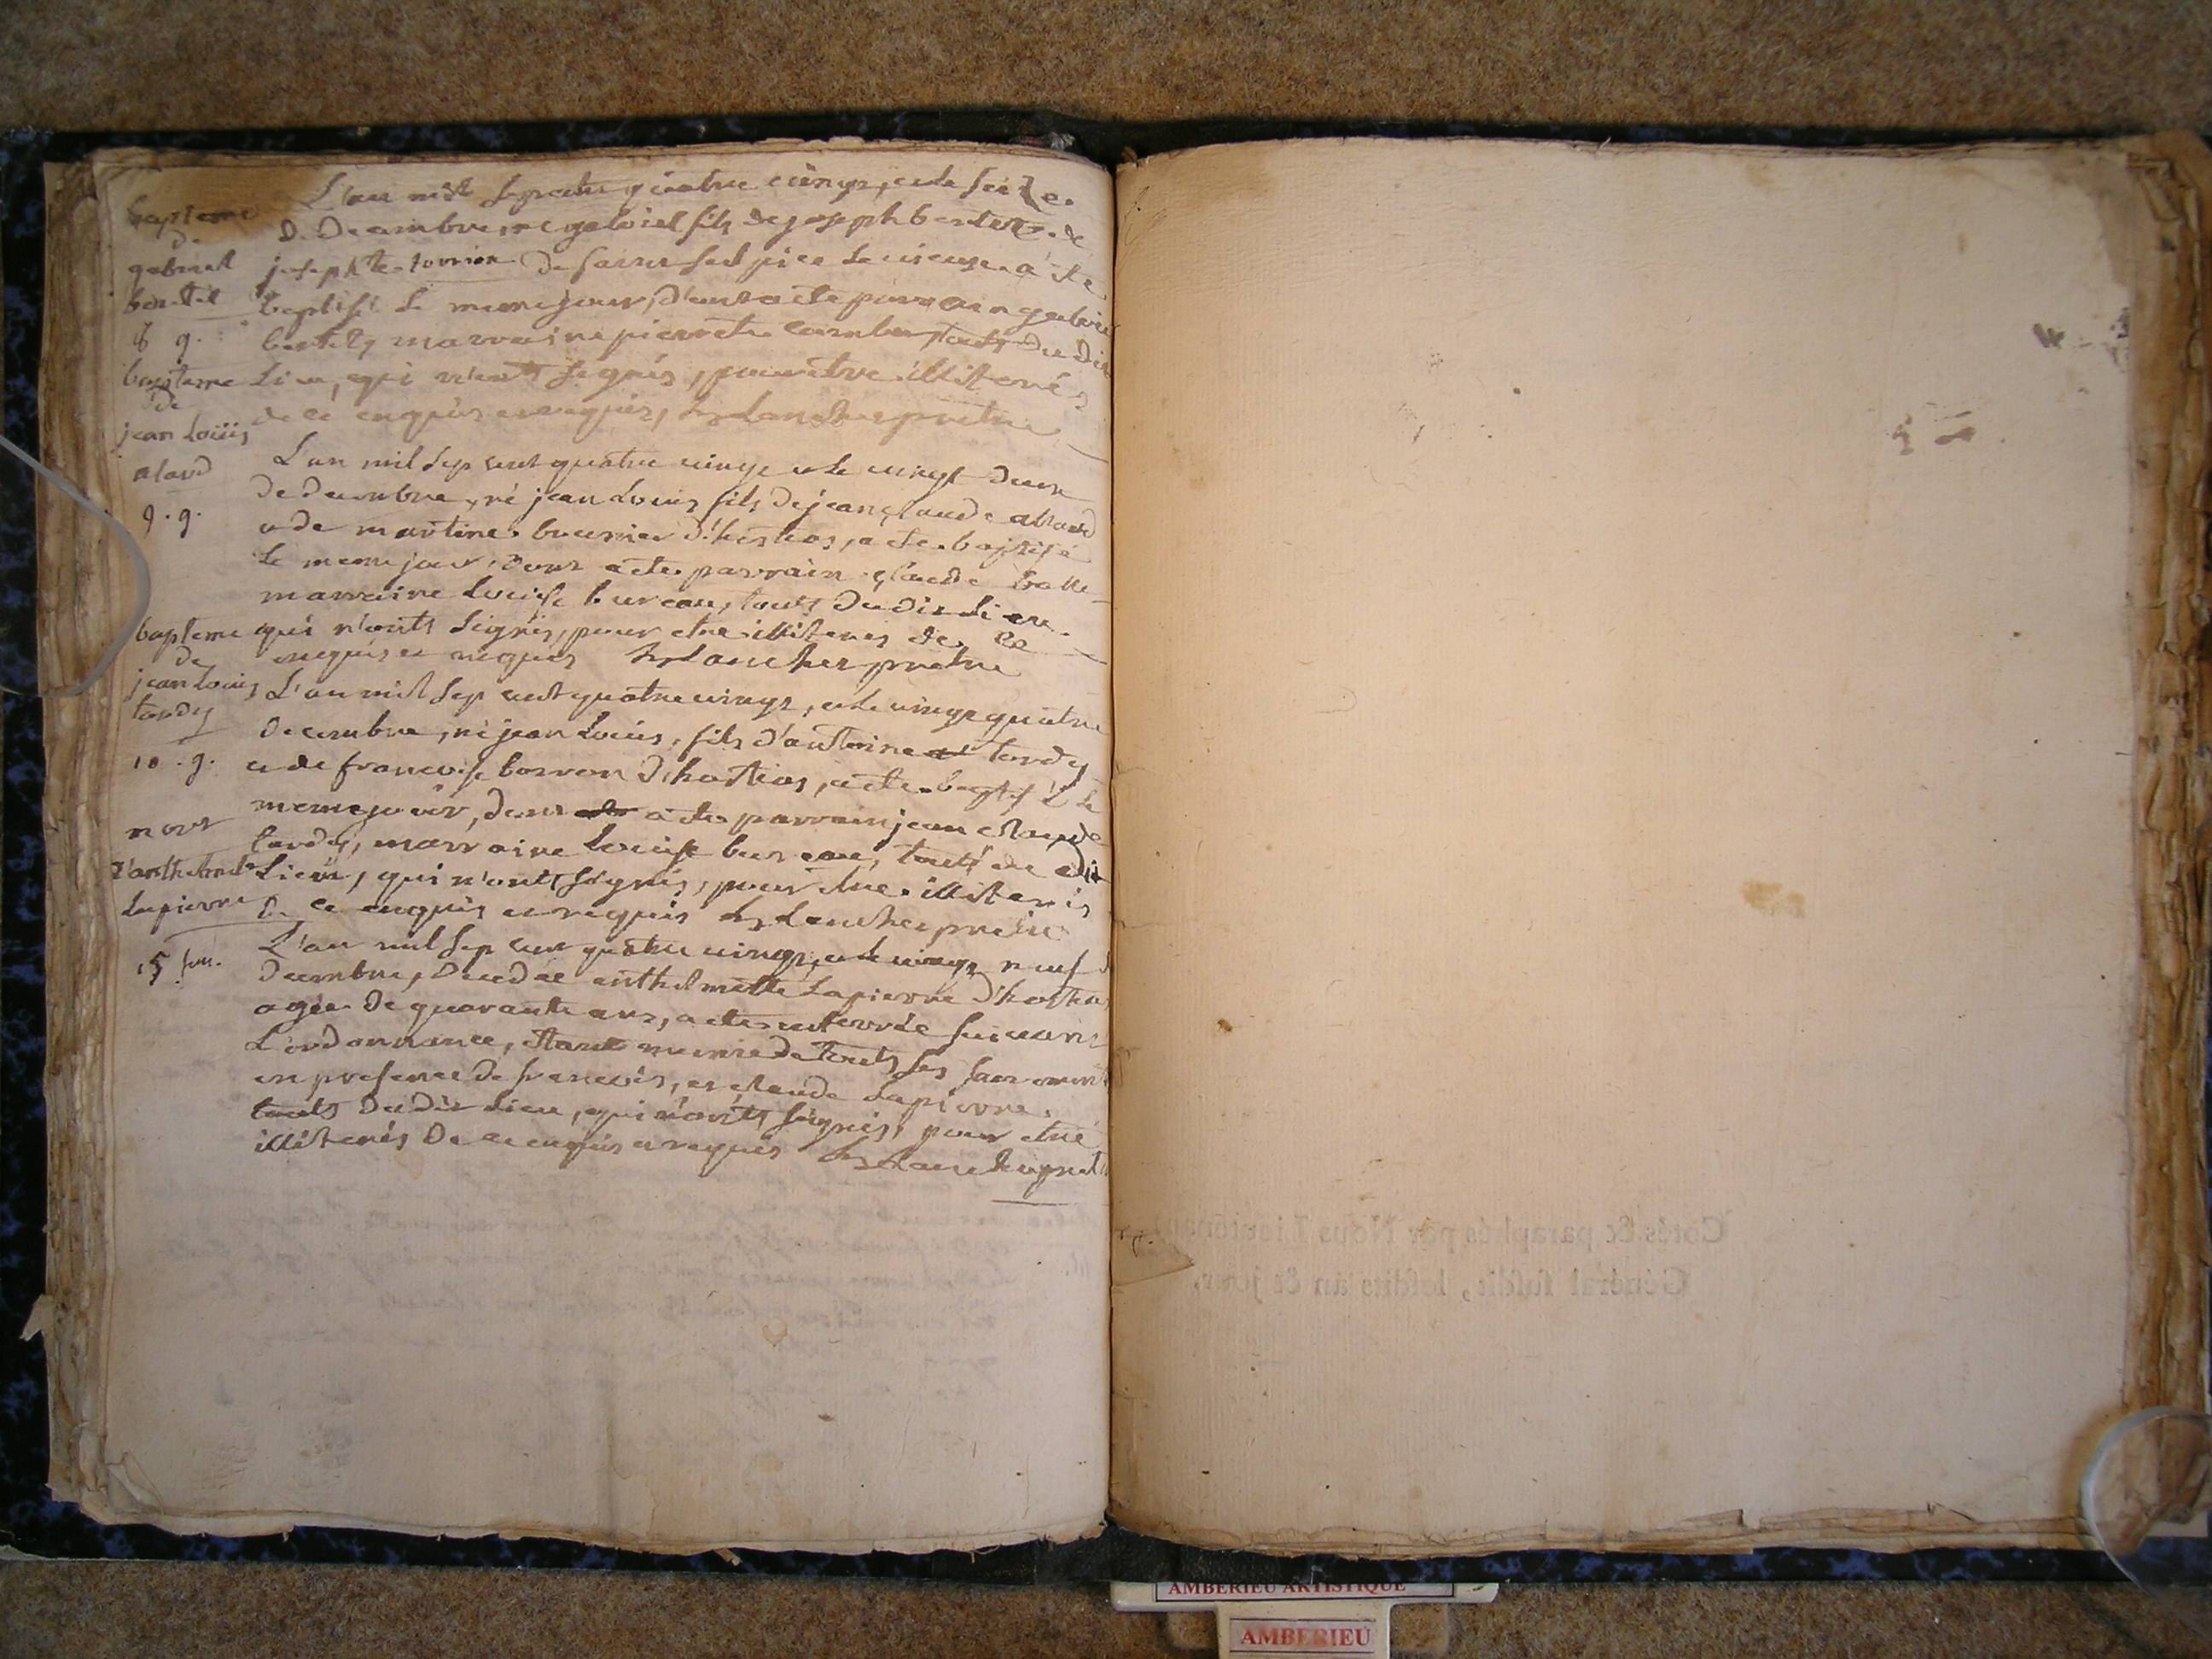 bapteme
de
gabriel
bertet
8 g.
L'an mil sept cent quatre vings, et le seize
De Decembre, ne gabriel fils de joseph bertet. &
josephte tournier de saint sulpice le vieux. a ete
baptisé le meme jour, dont acte parrain gabriel
bertet marraine pierrette tous du dit
lieu, qui n'ont signés, pour être illiterés
de ce enquis et requis, Blanchet pretre
bapteme
de
jean Loüis
alard
9. g.
L'an mil sep cent quatre vings et le vingt deux
de decembre, né jean Louis fils de jean claude allard
et de martine d'hostias, a ete baptisé
le meme jour, dont acte parrain claude
marraine Louise bureau, touts du dit lieu
qui n'onts signés, pour etre illiterés de ce
enquis et requis Blanchet pretre
bapteme
de
jean Louis
tardy
10. g.
L'an mil sep cent quatre vings, et le vings quatre
decembre, né jean Louis, fils d'antoine tardy
et de francoise borron d'hostias, a ete baptisé le
meme jour, dont acte parrain jean claude
tardy, marraine Louise bureau, touts du dit
Lieu, qui n'onts signés, pour etre illiterés
de ce enquis et requis Blanchet pretre
mort
d'anthelmette
Lapierre
15 fem.
L'an mil sep cent quatre vings, et le vings neuf
decembre, decedée anthelmette Lapierre d'hostias
agée de quarante ans, a ete enterrée suivant
L'ordonnance, étant munie de touts ses sacrements
en presence de francois, et claude Lapierre.
touts du dit Lieu, qui n'onts signés, pour etre
illiterés De ce enquis et requis Blanchet pret
Cotés & paraphés par Nous Lieutenant
Général susdit, lesdits an & jour.
AMBERIEU ARTISTIQUE
AMBERIEU